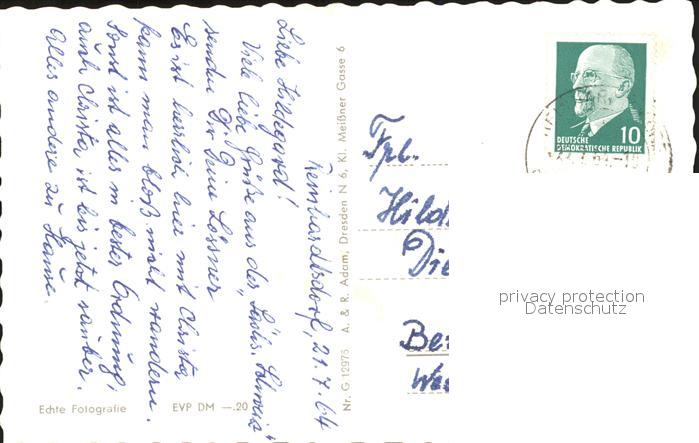 Reinhardtsdorf, 21.7.64
Liebe Hildegard!
Viele liebe Grüße aus der „Sächs. Schweiz“
senden Dir Deine Lössner
Es ist herrlich hier mit Christa
kann man bloß nicht wandern.
Sonst ist alles in bester Ordnung,
auch Christa ist bis jetzt sauber.
Alles andere zu Hause.
Echte Fotografie
EVP DM —.20
Nr. G 12975 A. & R. Adam, Dresden N 6, Kl. Meißner Gasse 6
10
DEUTSCHE
DEMOKRATISCHE REPUBLIK
Hild
Die
privacy protection
Datenschutz